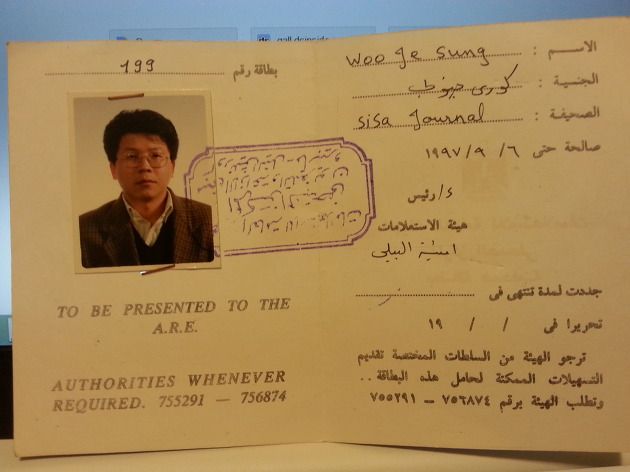 gall.dcinside
بطاقة رقم 199
TO BE PRESENTED TO THE
A.R.E.
AUTHORITIES WHENEVER
REQUIRED. 755291 — 756874
الاسم : Woo Je Sung
الجنسية : كورى جنوبى
الصحيفة : Sisa Journal
صالحة حتى ٦ / ٩ / ١٩٩٧
رئيس
هيئة الاستعلامات
جددت لمدة تنتهى فى
تحريرا فى / / ١٩
ترجو الهيئة من السلطات المختصة تقديم
التسهيلات الممكنة لحامل هذه البطاقة ..
وتطلب الهيئة برقم ٧٥٦٨٧٤ — ٧٥٥٢٩١